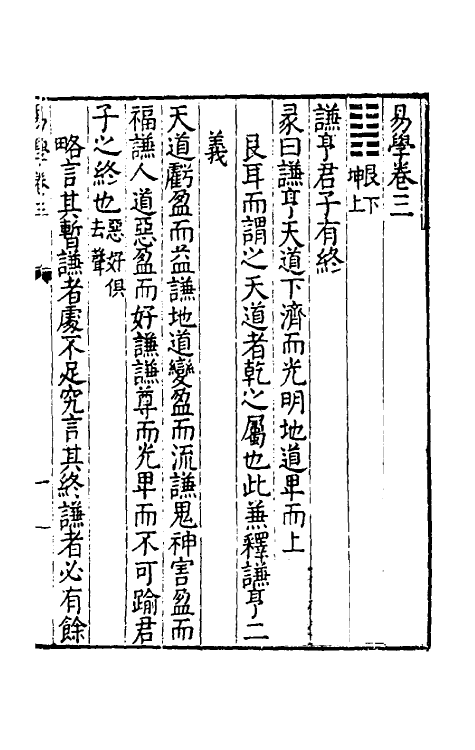 易學卷三
䷎艮下坤上
謙亨君子有終
彖曰謙亨天道下濟而光明地道卑而上
艮耳而謂之天道者乾之屬也此兼釋謙亨二
義
天道虧盈而益謙地道變盈而流謙鬼神害盈而
福謙人道惡盈而好謙謙尊而光卑而不可踰君
子之終也惡好俱去聲
略言其暫謙者處不足究言其終謙者必有餘
易學卷三
一